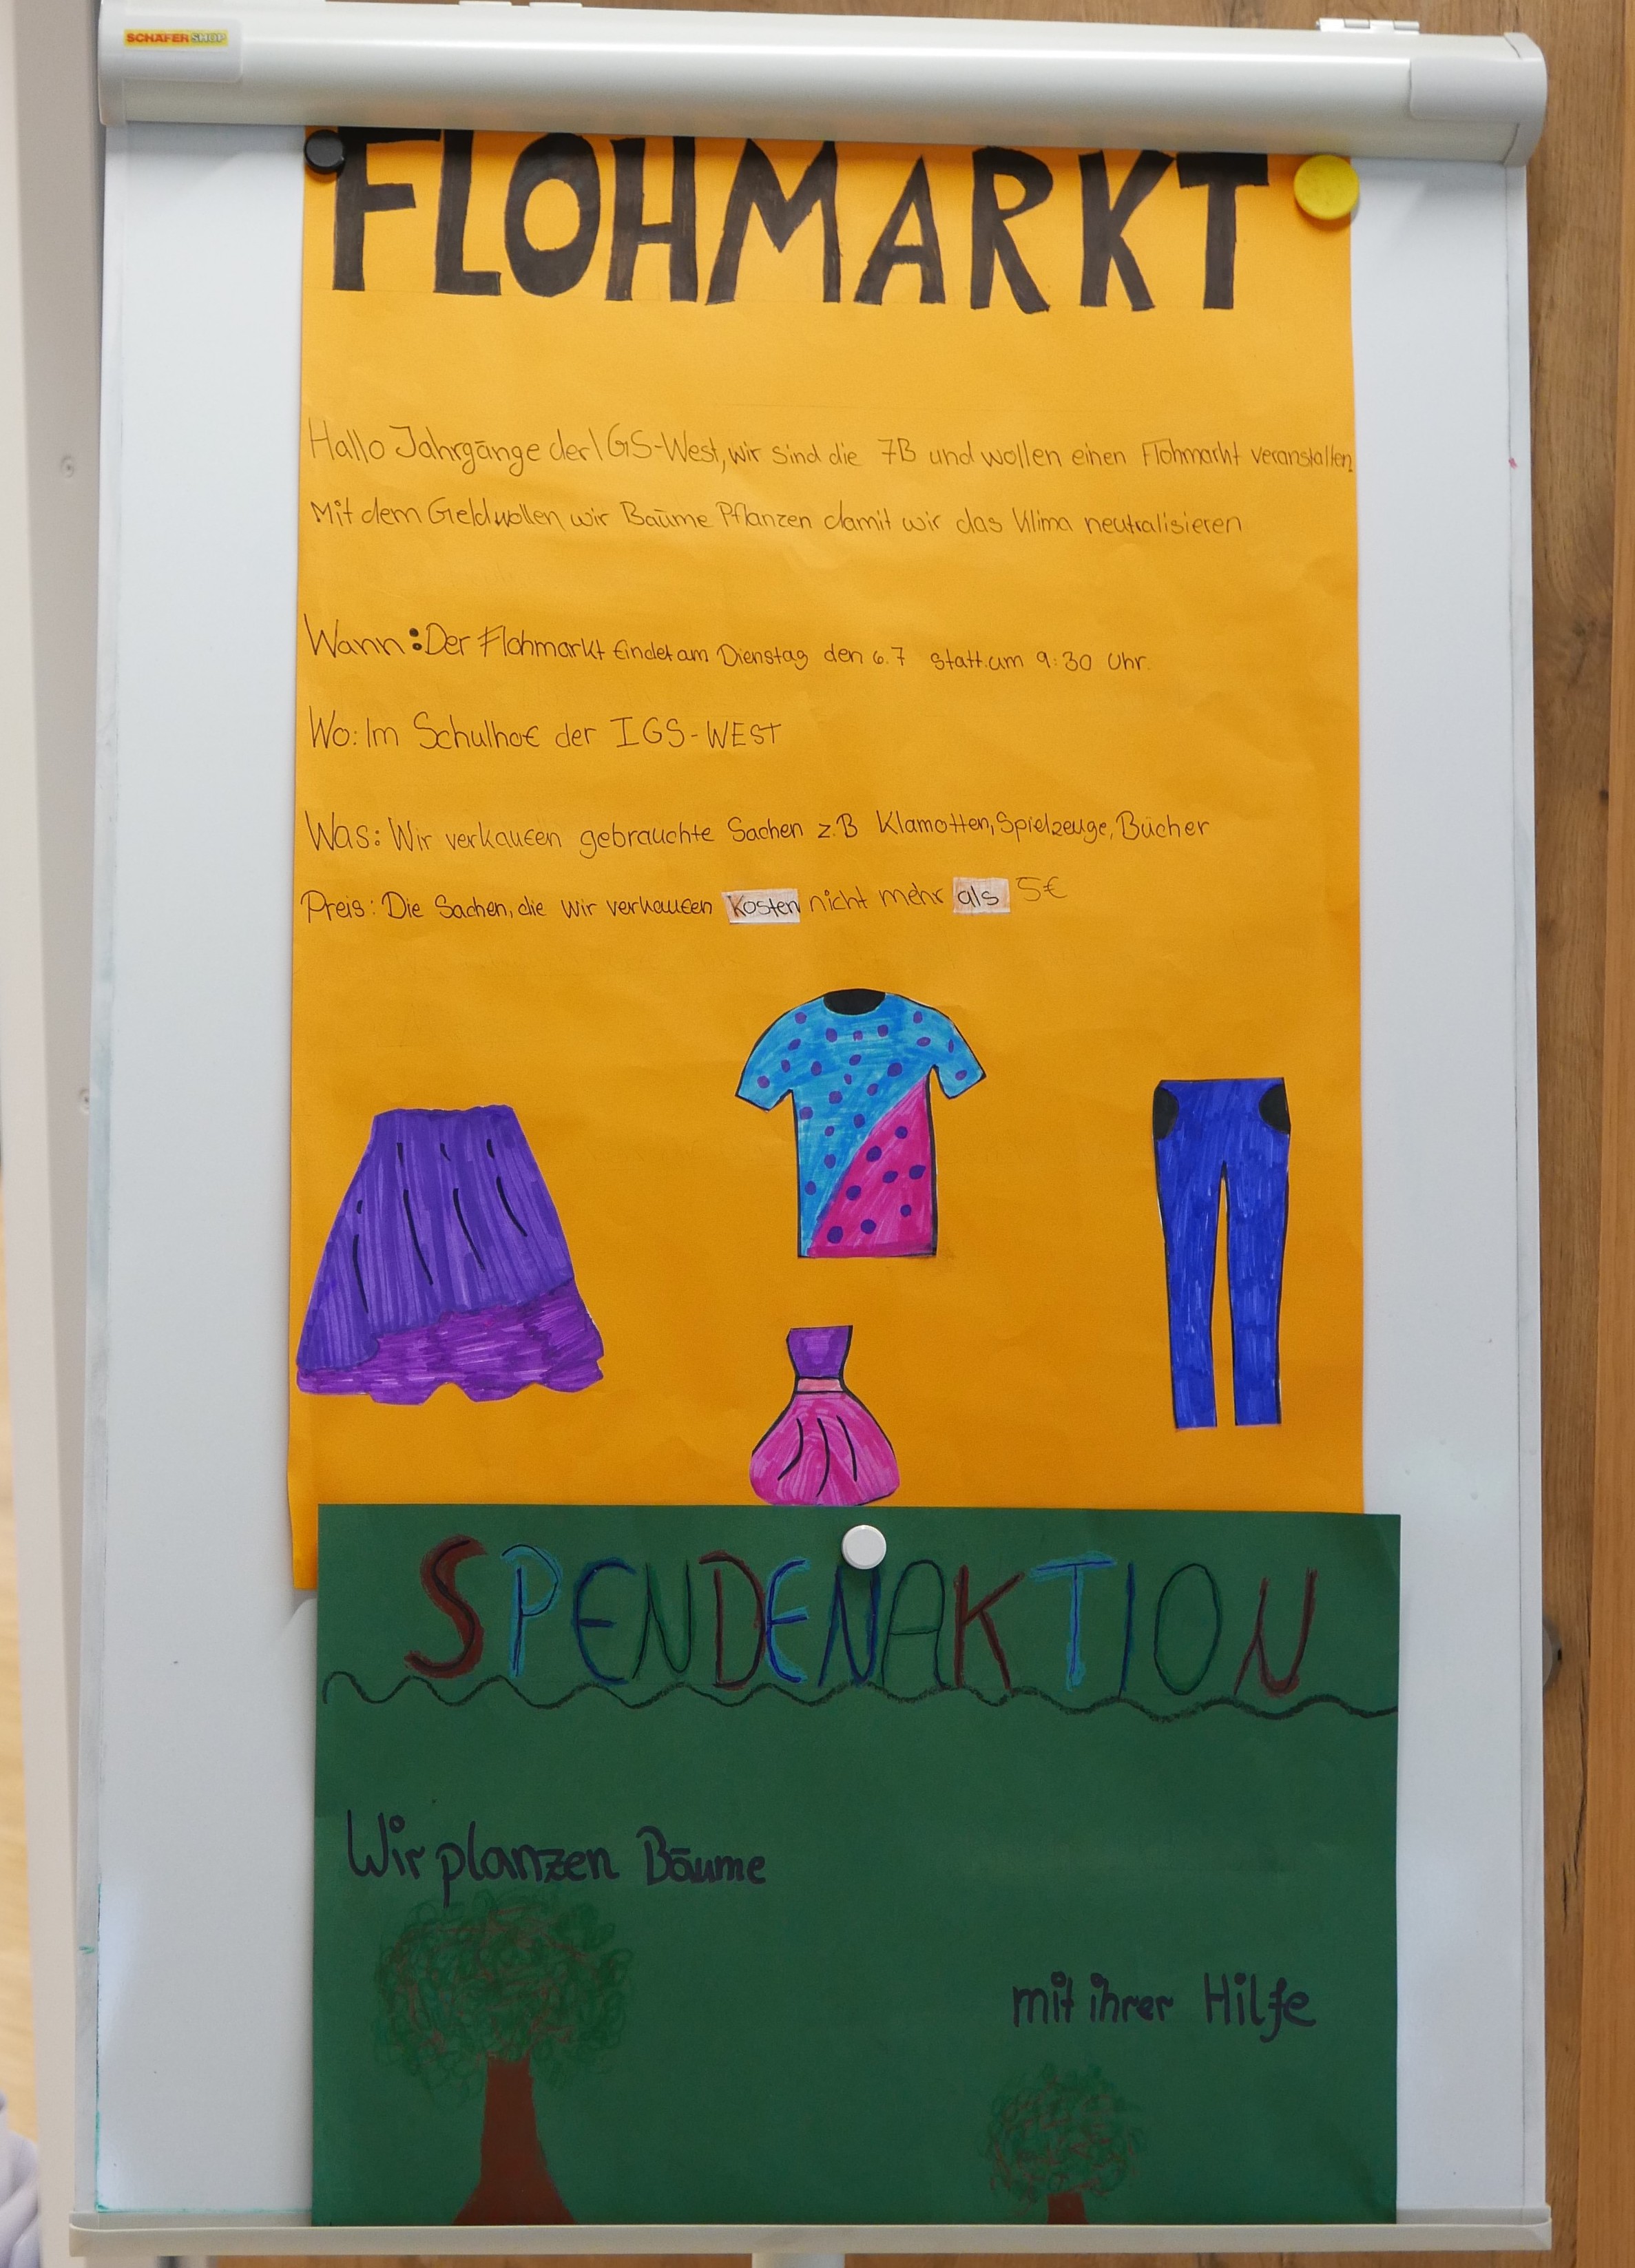 SCHÄFER SHOP
FLOHMARKT
Hallo Jahrgänge der IGS-West, wir sind die 7B und wollen einen Flohmarkt veranstalten
Mit dem Geld wollen wir Baüme Pflanzen damit wir das Klima neutralisieren
Wann: Der Flohmarkt findet am Dienstag den 6.7 statt um 9:30 Uhr.
Wo: Im Schulhof der IGS-WEST
Was: Wir verkaufen gebrauchte Sachen z.B Klamotten, Spielzeuge, Bücher
Preis: Die Sachen, die wir verkaufen kosten nicht mehr als 5€
SPENDENAKTION
Wir planzen Bäume
mit ihrer Hilfe